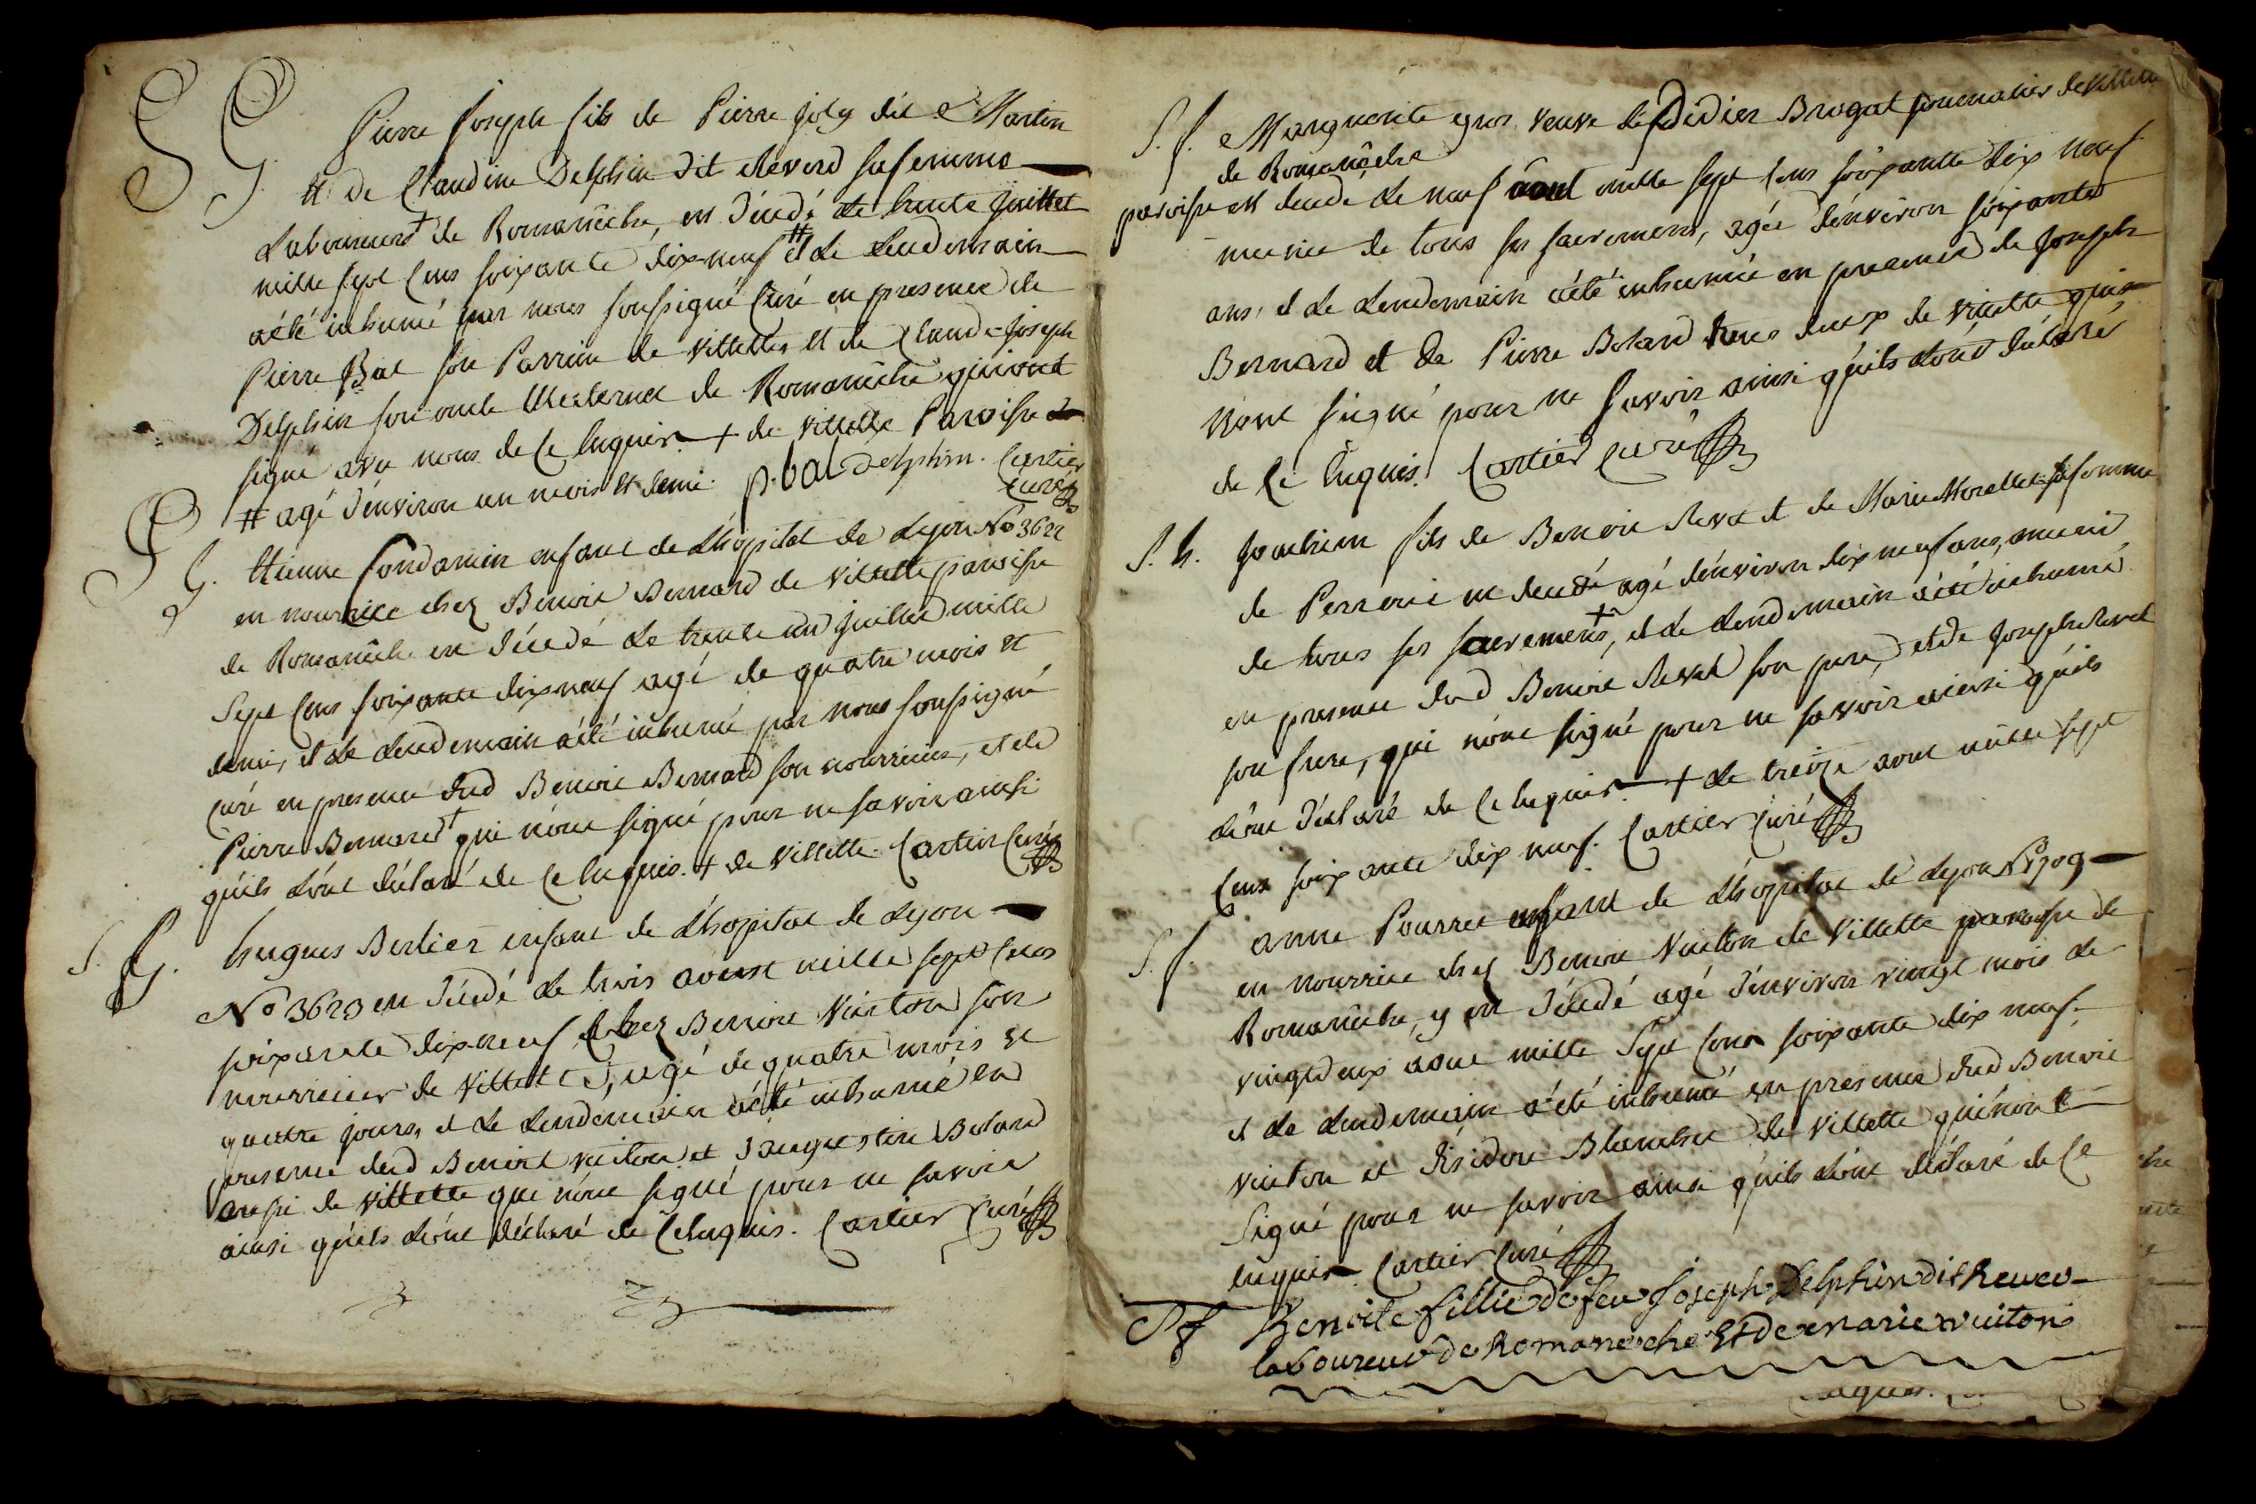 S G. Pierre Joseph fils de Pierre Joly dit Martin
et de Claudine Delphin dit Reverd sa femme
Laboureurs + de Romanêche, est décédé le trente Juillet
mille sept cens soixante dix neuf # et le lendemain
a été inhumé par nous soussigné Curé en presence de
Pierre Bal son Parrain de Villette et de Claude Joseph
Delphin son oncle Maternel de Romanêche qui ont
signé avec nous de ce enquis + de Villette Paroisse
# agé d'environ un mois et demi. p. bal Delphin. Cartier
Curé
S G. Etienne Condamin enfant de L'hopital de Lyon No 3622
en nourrice chez Benoit Bernard de Villette paroisse
de Romanêche est décédé le trente un juillet mille
sept cens soixante dix neuf agé de quatre mois et
demi, et le lendemain a été inhumé par nous soussigné
Curé en presence dud Benoit Bernard son nourricier, et de
Pierre Bernard + qui n'ont signé pour ne savoir ainsi
qu'ils l'ont déclaré de ce enquis. + de Villette. Cartier Curé
S. G. hugues Berlier enfant de L'hopital de Lyon
No 3623 est décédé le trois aoust mille sept cens
soixante dix neuf chez Benoit Vuiton son
nourricier de Villette, agé de quatre mois et
quatre jours, et le lendemain a été inhumé en
presence dud Benoit Vuiton et d'augustin Boland
aussi de Villette qui n'ont signé pour ne savoir
ainsi qu'ils l'ont déclaré de ce enquis. Cartier Curé
S. f. Marguerite gros veuve de Didier Brogat journalier de Villette
de Romanêche
paroisse est decedé le neuf aout mille sept cens soixante dix neuf
munie de tous ses sacremens, agée d'environ soixante
ans, et le lendemain a été inhumée en presence de Joseph
Bernard et de Pierre Boland tous deux de Villette qui
n'ont signé pour ne savoir ainsi qu'ils l'ont déclaré
de ce enquis. Cartier Curé
S. h. Joachim fils de Benoit Revet et de Marie Morellet sa femme
de est decedé agé d'environ dix neuf ans, muni
de tous ses sacremens +, et le lendemain a été inhumé
en presence dud Benoit Revet son pere, et de Joseph Revet
son frere, qui n'ont signé pour ne savoir ainsi qu'ils
l'ont déclaré de ce enquis. + le treize aout mille sept
cens soixante dix neuf. Cartier Curé
S. f. anne Pourret enfant de L'hopital de Lyon No
en nourrice chez Benoit Vuiton de Villette paroisse de
Romanêche, y est décédé agé d'environ vingt mois le
vingt deux aout mille sept cens soixante dix neuf
et le lendemain a été inhumé en presence dud Benoit
Vuiton et d'isidore Blanchet de Villette qui n'ont
signé pour ne savoir ainsi qu'ils l'ont déclaré de ce
enquis. Cartier Curé
S f Benoite fillie de feu Joseph Delphin dit Rever
laboureur de Romaneche Et de marie vuiton